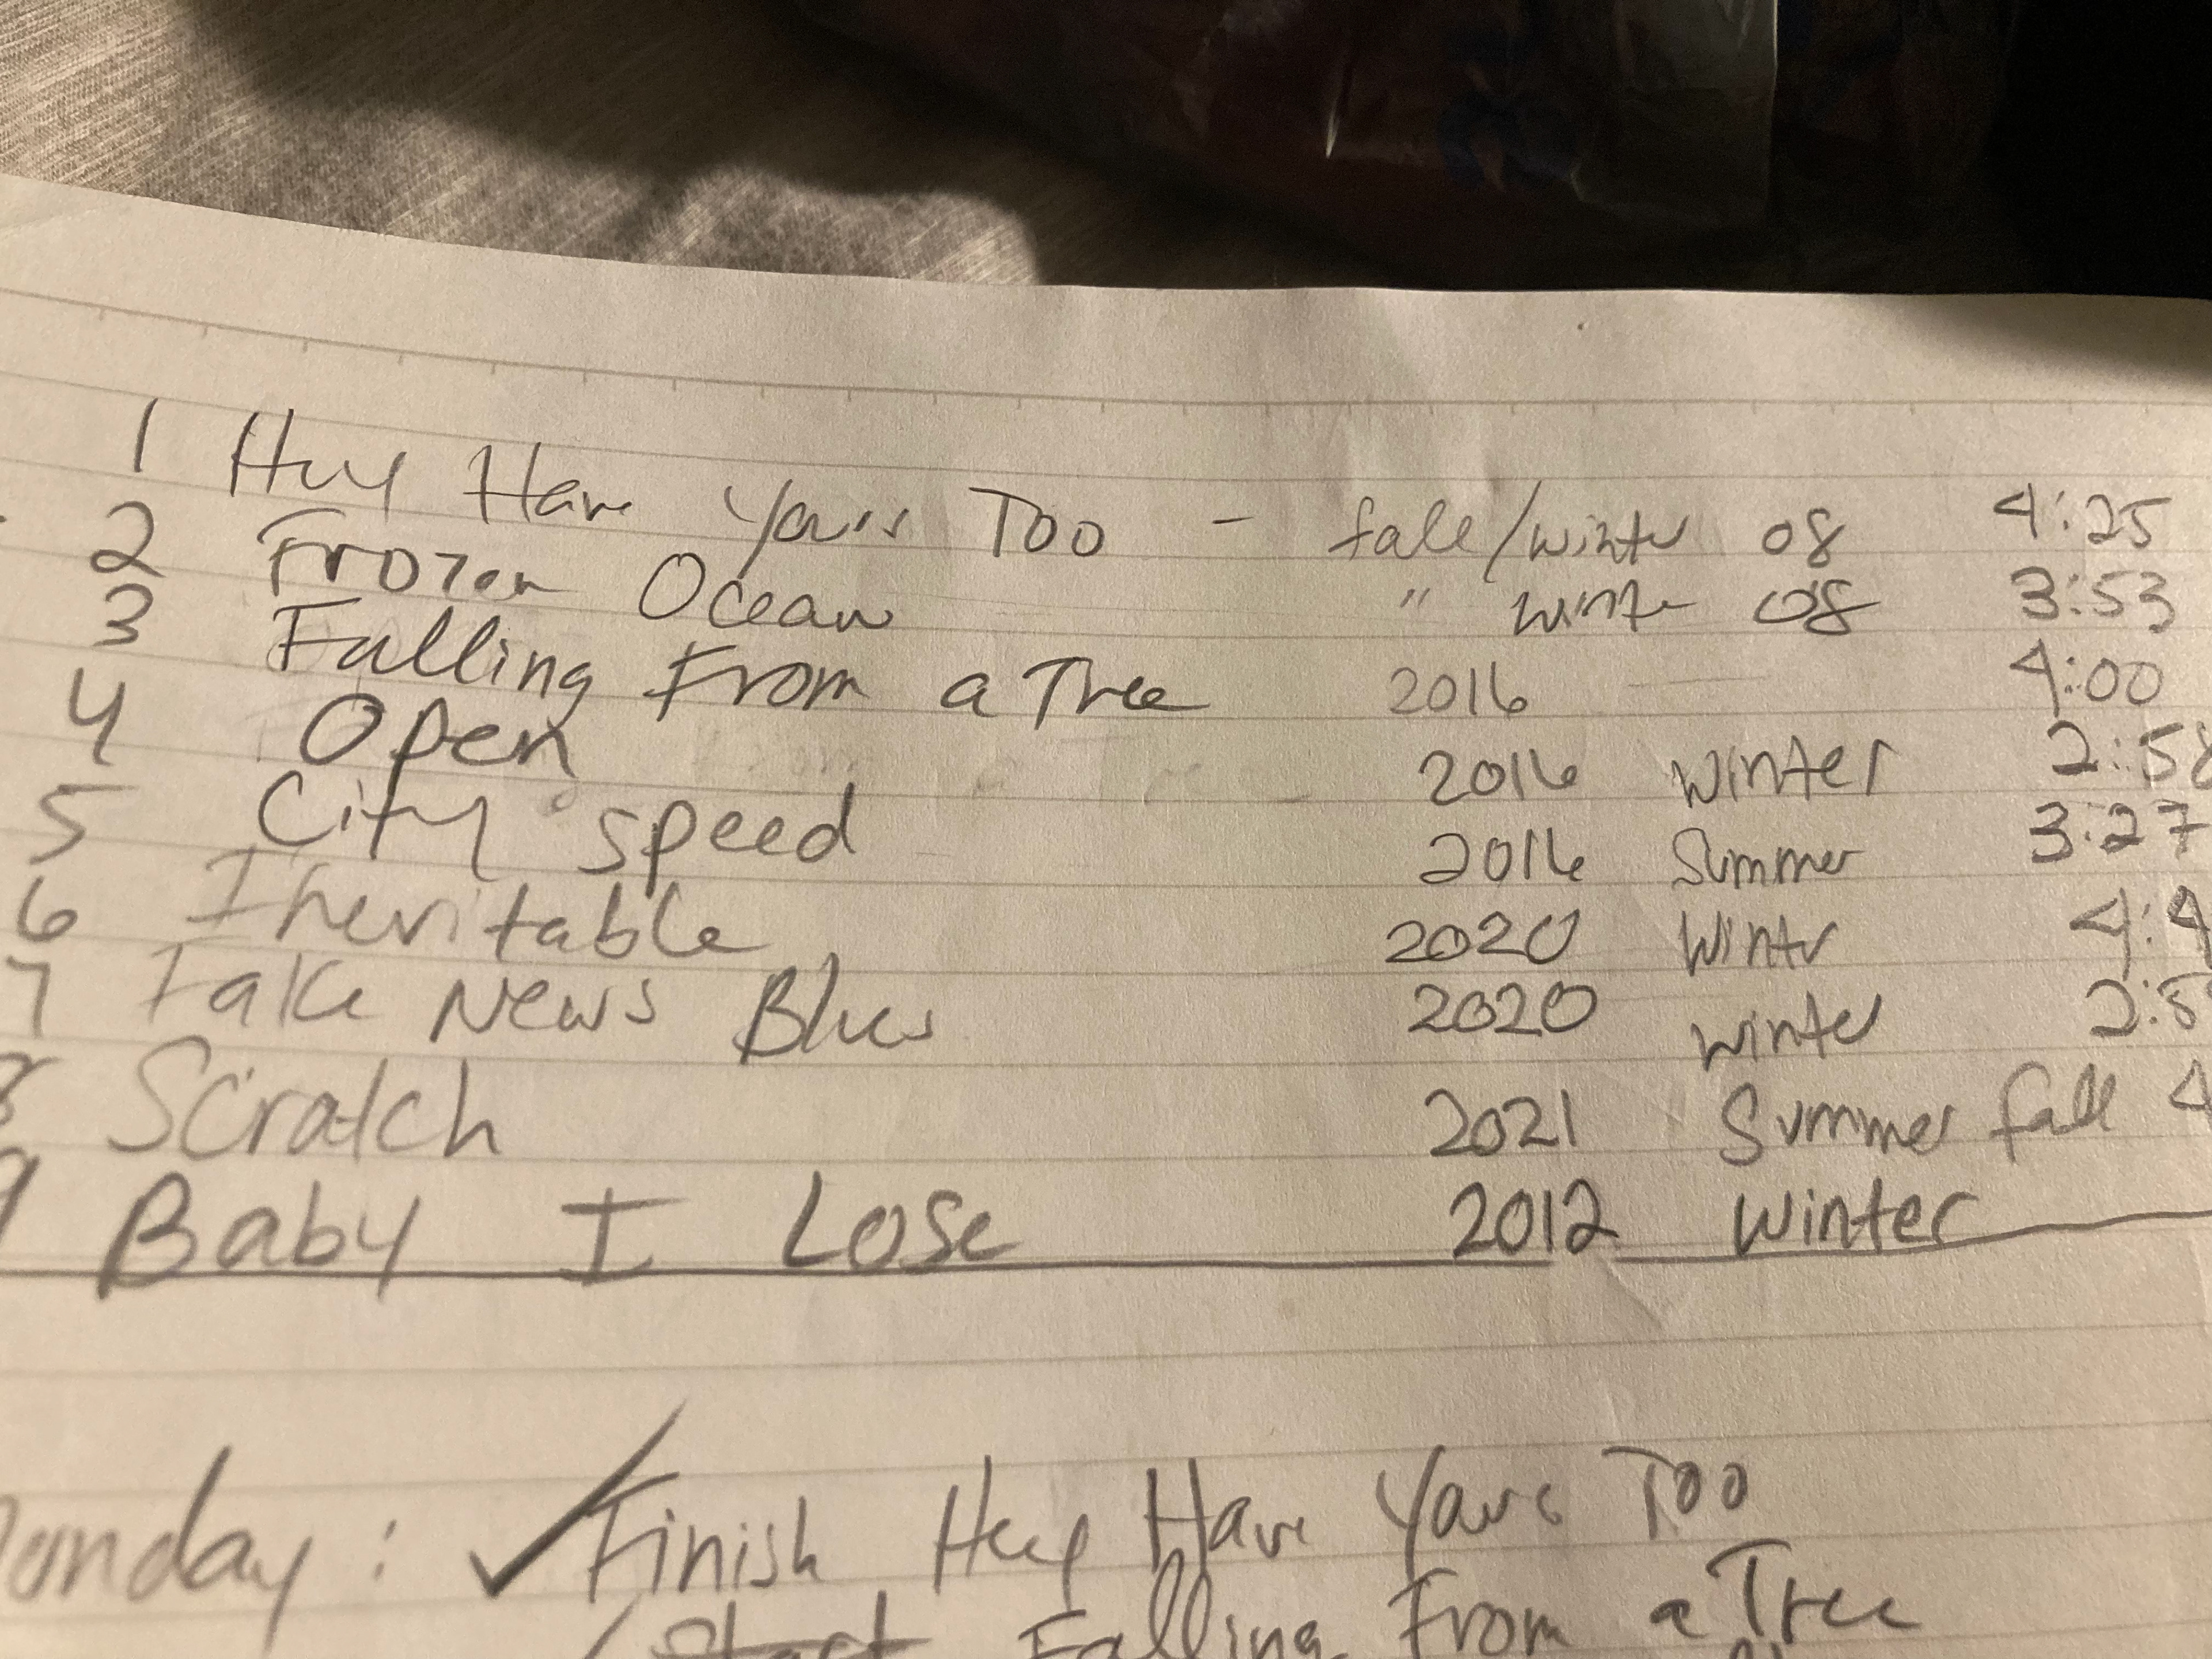 1 Hey Have Yours Too - fall/winter 08 4:25
2 Frozen Ocean " winter 08 3:53
3 Falling From a Tree 2016 4:00
4 Open 2016 winter 2:58
5 City speed 2016 Summer 3:27
6 Inevitable 2020 Winter 4:4
7 Fake News Blues 2020 winter 2:5
8 Scratch 2021 Summer fall 4
9 Baby I Lose 2012 Winter
onday: ✓ Finish Hey Have Yours Too
Start Falling From a Tree